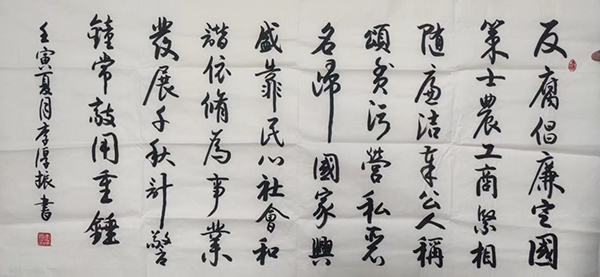 反腐倡廉定國
策士農工商緊相
随廉洁奉公人稱
頌貪污營私惡
名歸國家興
盛靠民心社會和
諧依脩為事業
發展千秋計警
鐘常敲用重錘
壬寅夏月李淳振書